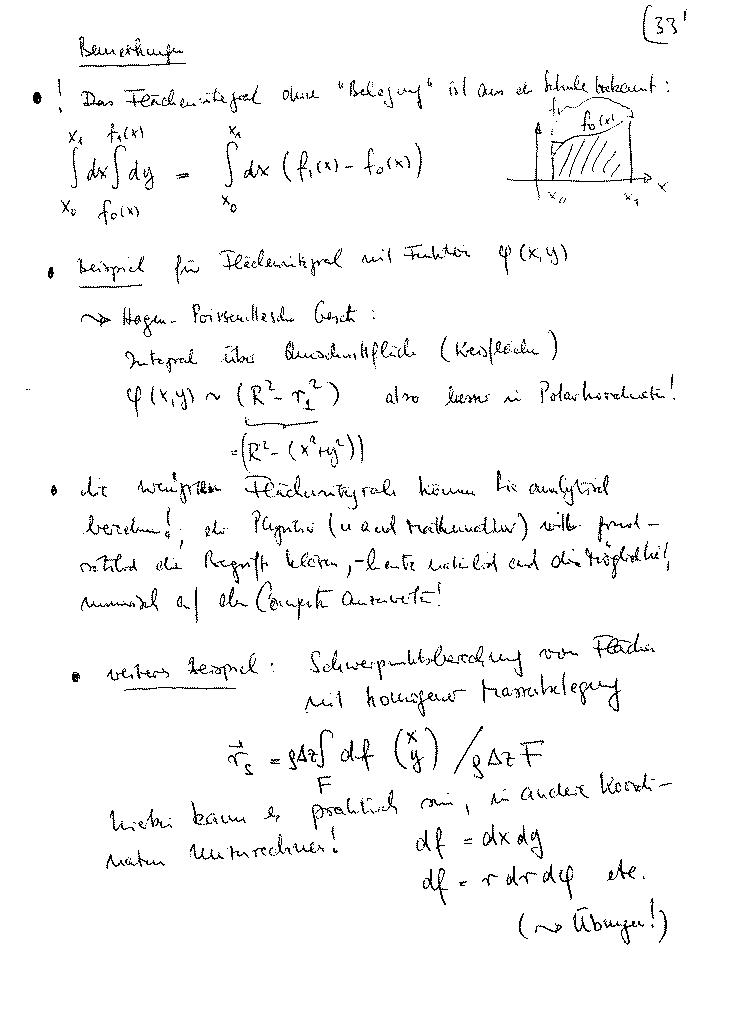 (33'
Bemerkungen
• ! Das Flächenintegral ohne "Belegung" ist aus der Schule bekannt:
x₁ f₁(x) x₁
∫dx∫dy = ∫dx (f₁(x) - f₀(x))
x₀ f₀(x) x₀
f₁
f₀(x)
x₀ x₁ x
• Beispiel für Flächenintegral mit Funktion φ(x,y)
↝ Hagen-Poiseuillesche Gesetz:
Integral über Querschnittfläche (Kreisfläche)
φ(x,y) ~ (R² - r⊥²) also besser in Polarkoordinaten!
=(R² - (x²+y²))
• die wenigsten Flächenintegrale können Sie analytisch
berechnen!, die Physiker (u auch Mathematiker) wollen grund-
sätzlich die Begriffe klären, - heute natürlich auch die Möglichkeit,
numerisch auf dem Computer auszuwerten!
• weiteres Beispiel: Schwerpunktsberechnung von Flächen
mit homogener Massenbelegung
r⃗ₛ = ρΔz∫ df (x y) / ρΔz F
F
hierbei kann es praktisch sein, in andere Koordi-
naten umzurechnen! df = dx dy
df = r dr dφ etc.
(↝ Übungen!)